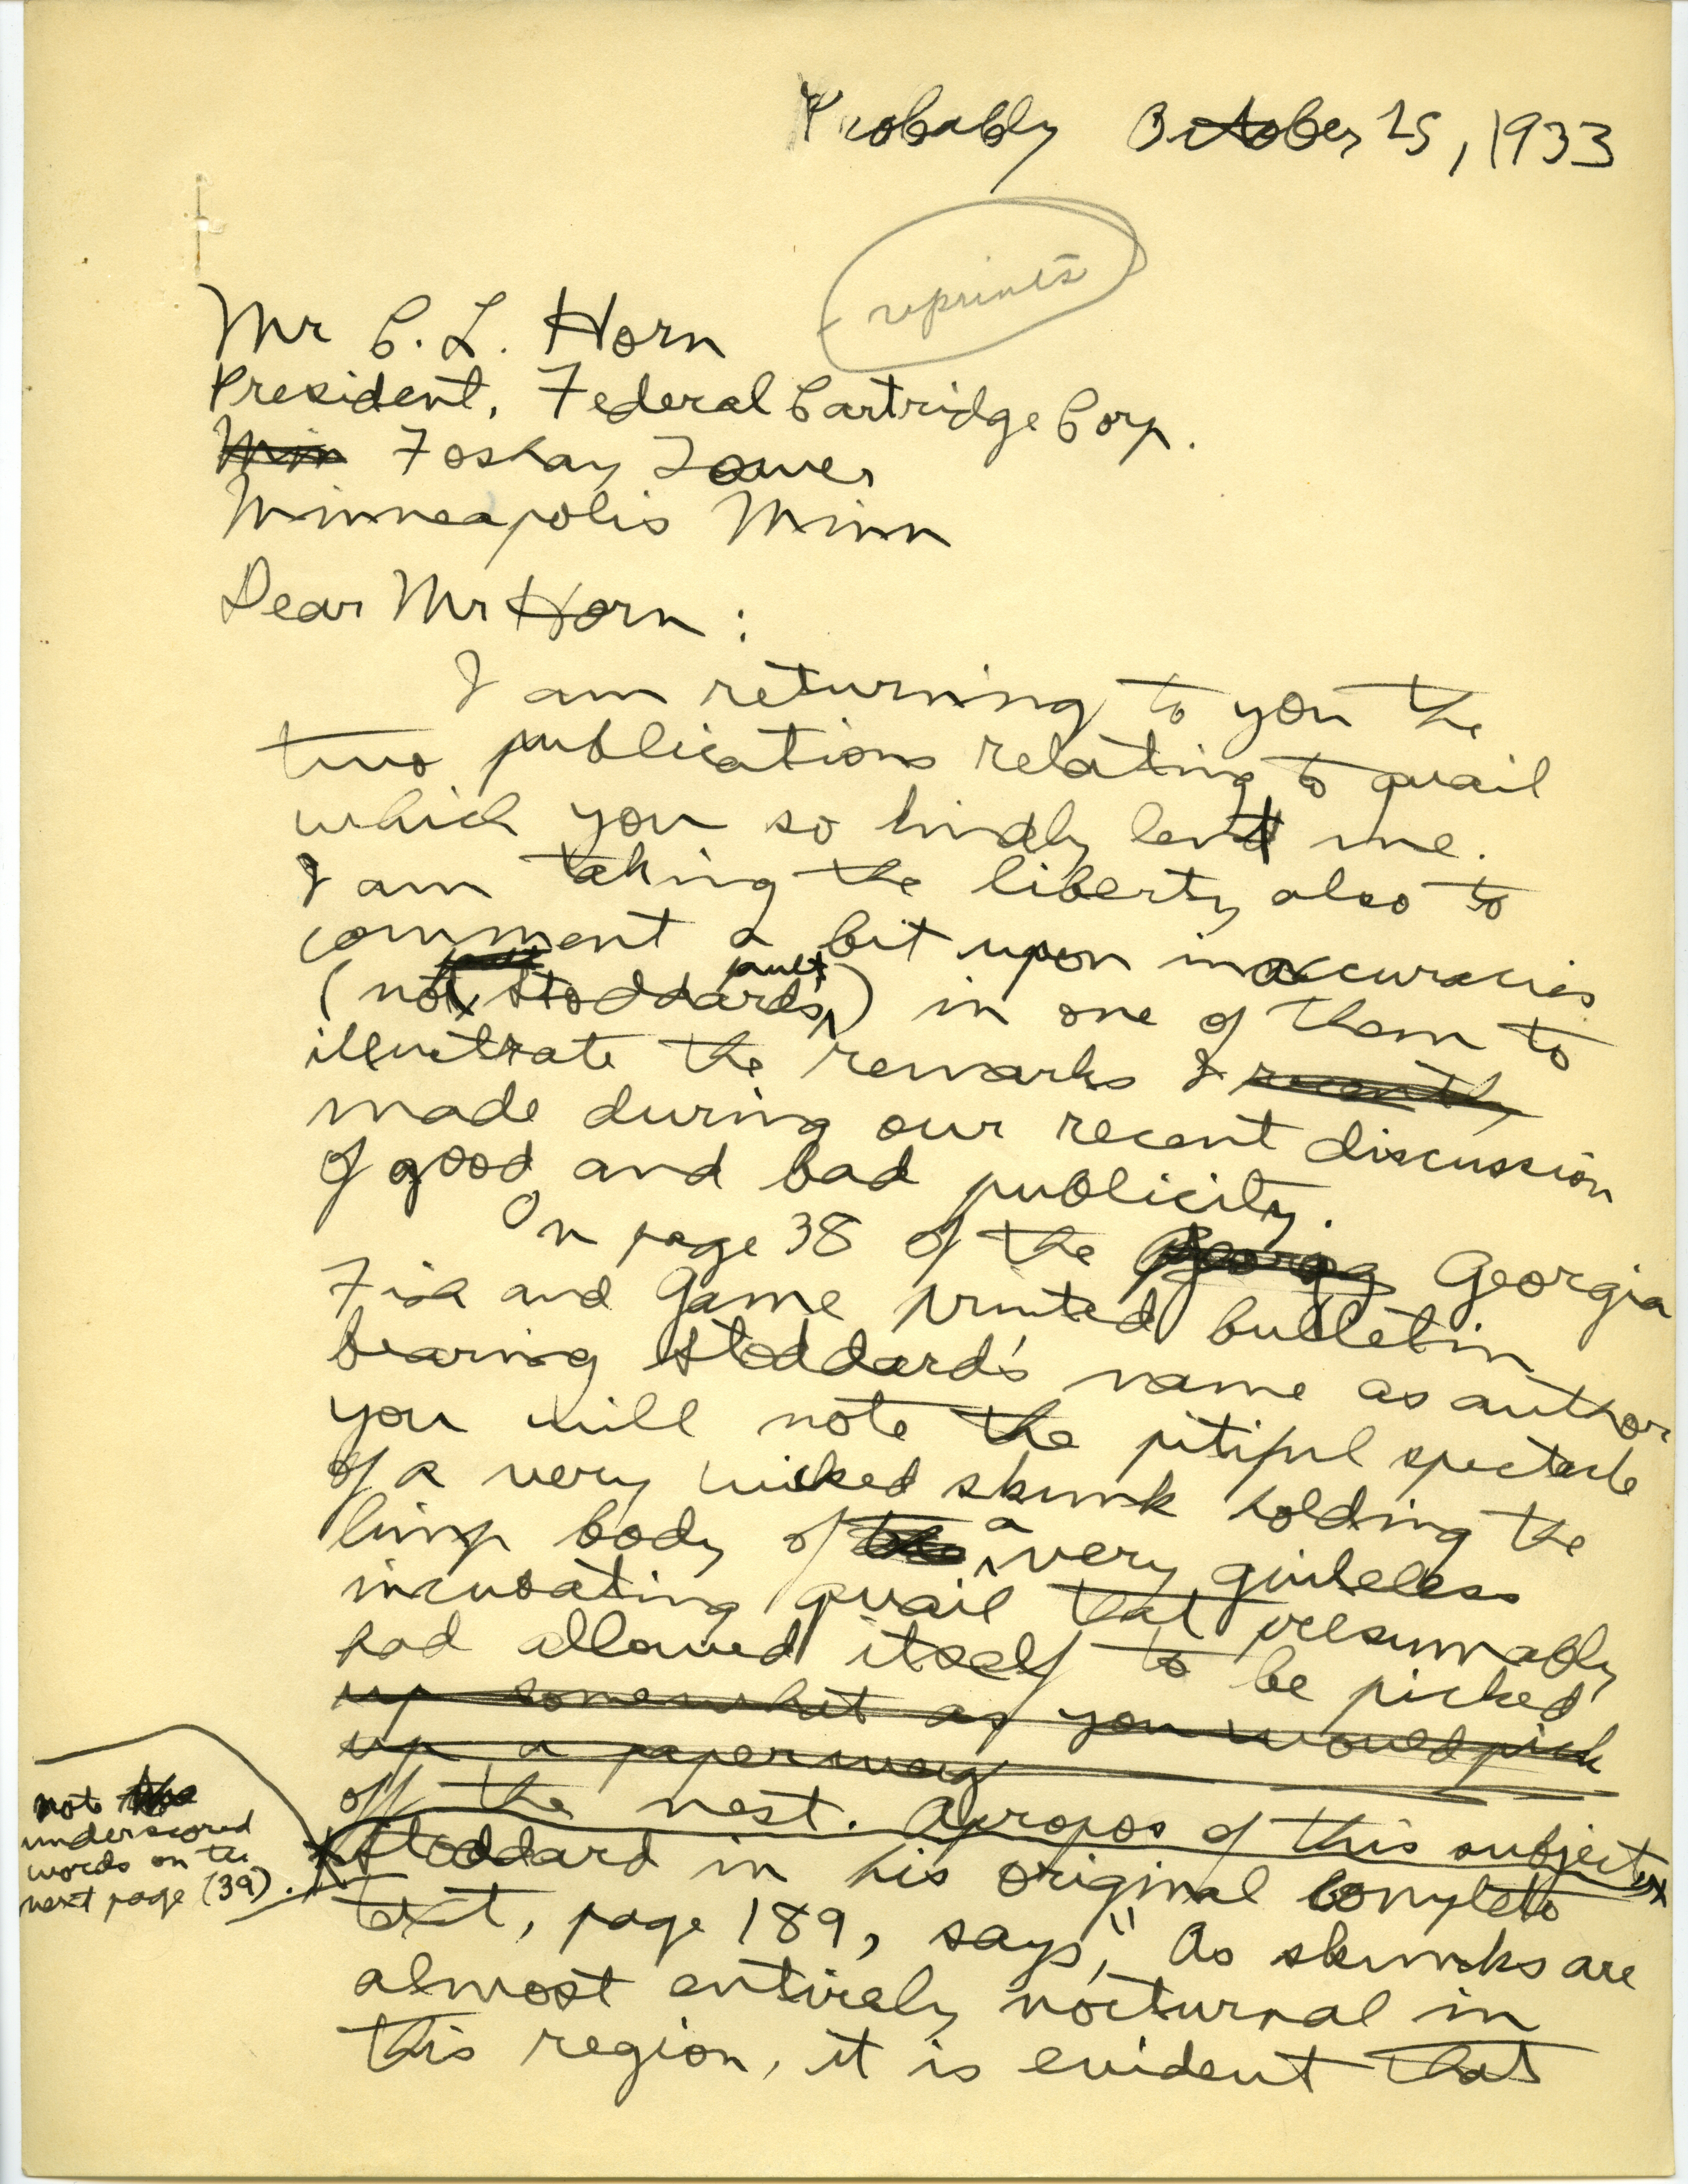 Probably October 25, 1933
reprints
Mr C. L. Horn
President, Federal Cartridge Corp.
Min Foshay Tower
Minneapolis Minn
Dear Mr Horn:
I am returning to you the
two publications relating to quail
which you so kindly lent me.
I am taking the liberty also to
comment a bit upon inaccuracies
(not Stoddard's fault) in one of them to
illustrate the remarks I recently
made during our recent discussion
of good and bad publicity.
On page 38 of the Georgia
Fish and Game printed bulletin
bearing Stoddard's name as author
you will note the pitiful spectacle
of a very wicked skunk holding the
limp body of the a very guileless
incubating quail that presumably
had allowed itself to be picked
up somewhat as you would pick
up a paperweig
off the nest. Apropos of this subject,
not the
underscored
words on the
next page (39).
Stoddard in his original complete
text, page 189, says, "As skunks are
almost entirely nocturnal in
this region, it is evident that